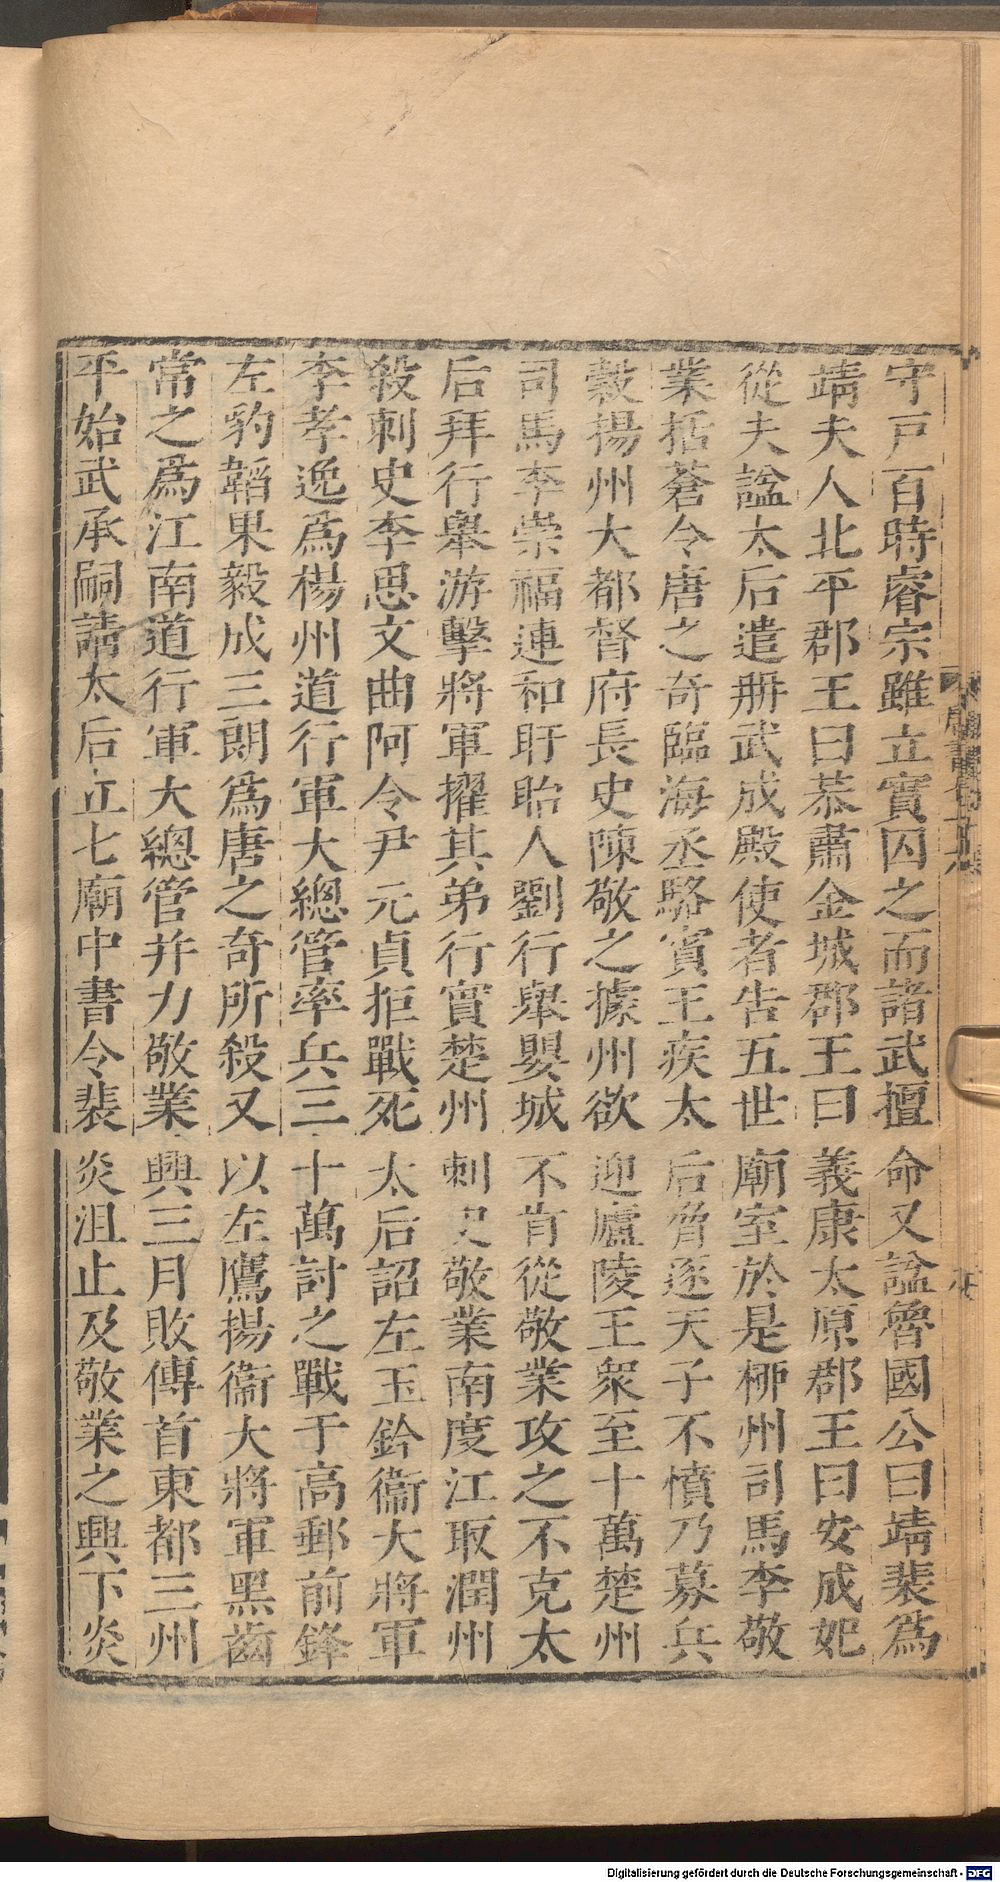 守戸百時睿宗雖立實囚之而諸武擅命又諡魯國公曰靖裴爲
靖夫人北平郡王曰恭肅金城郡王曰義康太原郡王曰安成妃
從夫諡太后遣册武成殿使者告五世廟室於是柳州司馬李敬
業括蒼令唐之奇臨海丞駱賓王疾太后脅逐天子不憤乃募兵
殺揚州大都督府長史陳敬之據州欲迎廬陵王衆至十萬楚州
司馬李崇福連和盱眙人劉行舉嬰城不肯從敬業攻之不克太
后拜行舉游擊將軍擢其弟行實楚州刺史敬業南度江取潤州
殺刺史李思文曲阿令尹元貞拒戰死太后詔左玉鈐衞大將軍
李孝逸爲楊州道行軍大總管率兵三十萬討之戰于高郵前鋒
左豹韜果毅成三朗爲唐之奇所殺又以左鷹揚衞大將軍黑齒
常之爲江南道行軍大總管并力敬業興三月敗傳首東都三州
平始武承嗣請太后立七廟中書令裴炎沮止及敬業之興下炎
Digitalisierung gefördert durch die Deutsche Forschungsgemeinschaft - DFG